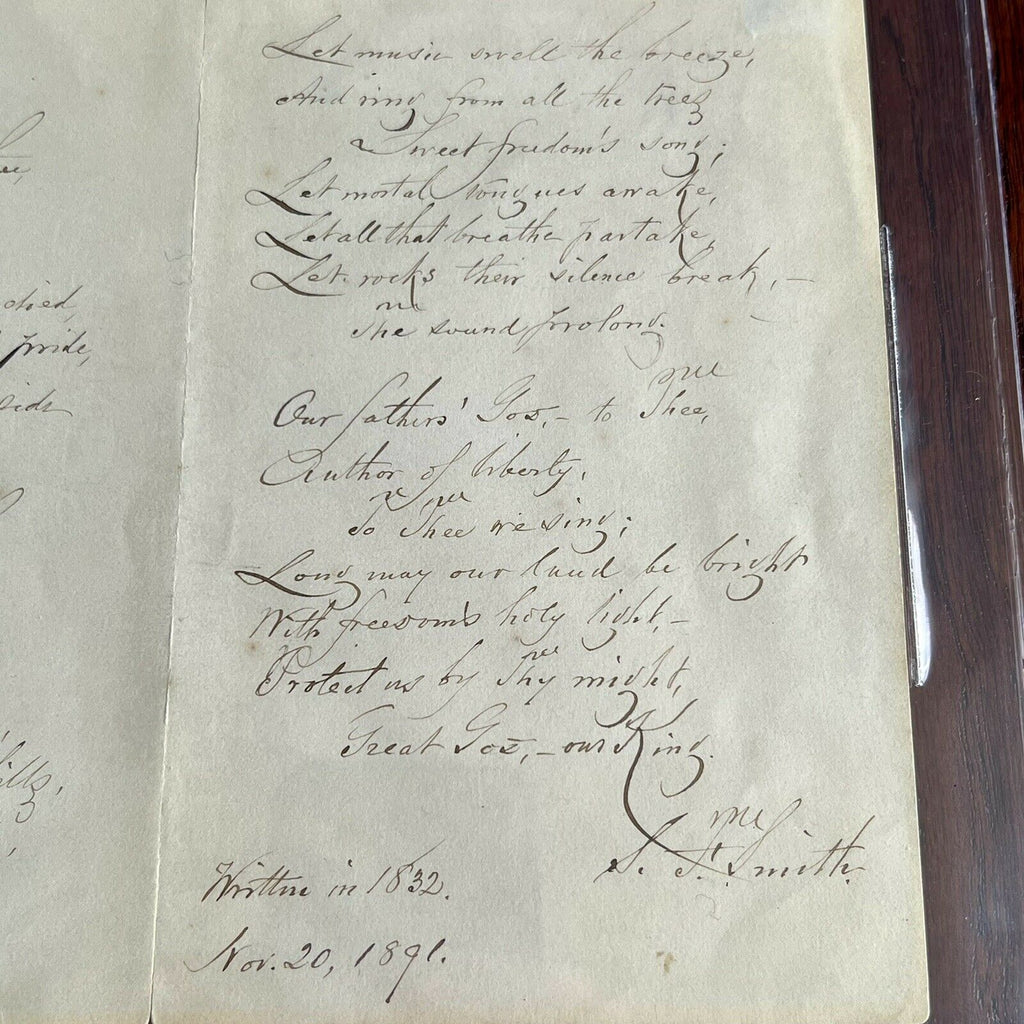 died,
pride,
side
Let music swell the breeze,
And ring from all the trees
Sweet freedom's song;
Let mortal tongues awake,
Let all that breathe partake,
Let rocks their silence break, –
The sound prolong.
Our fathers' God, – to Thee,
Author of liberty,
To Thee we sing;
Long may our land be bright
With freedom's holy light, –
Protect us by Thy might,
Great God, – our King.
S. F. Smith.
Written in 1832.
Nov. 20, 1891.